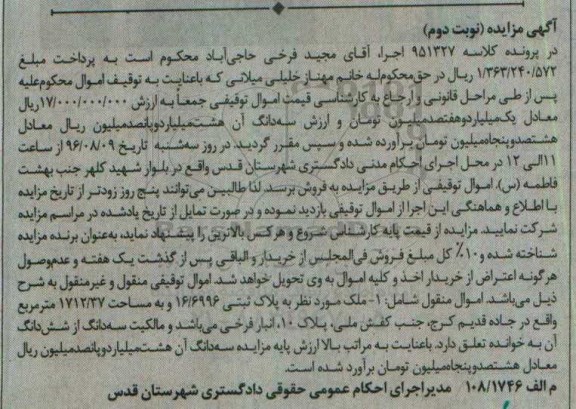 آگهی مزایده (نوبت دوم)
در پرونده کلاسه ۹۵۱۳۲۷ اجرا، آقای مجید فرخی حاجی‌آباد محکوم است به پرداخت مبلغ
۱/۳۶۳/۲۴۰/۵۷۲ ریال در حق‌محکوم‌له خانم مهناز خلیلی میلانی که باعنایت به توقیف اموال محکوم‌علیه
پس از طی مراحل قانونی و ارجاع به کارشناسی قیمت اموال توقیفی جمعاً به ارزش ۱۷/۰۰۰/۰۰۰/۰۰۰ریال
معادل یک‌میلیاردوهفتصدمیلیون تومان و ارزش سه‌دانگ آن هشت‌میلیاردوپانصدمیلیون ریال معادل
هشتصدوپنجاه‌میلیون تومان برآورده شده و سپس مقرر گردید، در روز سه‌شنبه تاریخ ۹۶/۰۸/۰۹ از ساعت
۱۱الی ۱۲ در محل اجرای احکام مدنی دادگستری شهرستان قدس واقع در بلوار شهید کلهر جنب بهشت
فاطمه (س)، اموال توقیفی از طریق مزایده به فروش برسد. لذا طالبین می‌توانند پنج روز زودتر از تاریخ مزایده
با اطلاع و هماهنگی این اجرا از اموال توقیفی بازدید نموده و در صورت تمایل از تاریخ یادشده در مراسم مزایده
شرکت نمایید. مزایده از قیمت پایه کارشناس شروع و هرکس بالاترین را پیشنهاد نماید، به‌عنوان برنده مزایده
شناخته شده و ۱۰٪ کل مبلغ فروش فی‌المجلس از خریدار و الباقی پس از گذشت یک هفته و عدم‌وصول
هرگونه اعتراض از خریدار اخذ و کلیه اموال به وی تحویل خواهد شد. اموال توقیفی منقول و غیرمنقول به شرح
ذیل می‌باشد. اموال منقول شامل: ۱- ملک مورد نظر به پلاک ثبتی ۱۶/۶۹۹۶ و به مساحت ۱۷۱۲/۳۷ مترمربع
واقع در جاده قدیم کرج، جنب کفش ملی، پلاک ۱۰، انبار فرخی می‌باشد و مالکیت سه‌دانگ از شش‌دانگ
آن به خوانده تعلق دارد. باعنایت به مراتب بالا ارزش پایه مزایده سه‌دانگ آن هشت‌میلیاردوپانصدمیلیون ریال
معادل هشتصدوپنجاه‌میلیون تومان برآورد شده است.
م الف ۱۰۸/۱۷۴۶ مدیراجرای احکام عمومی حقوقی دادگستری شهرستان قدس